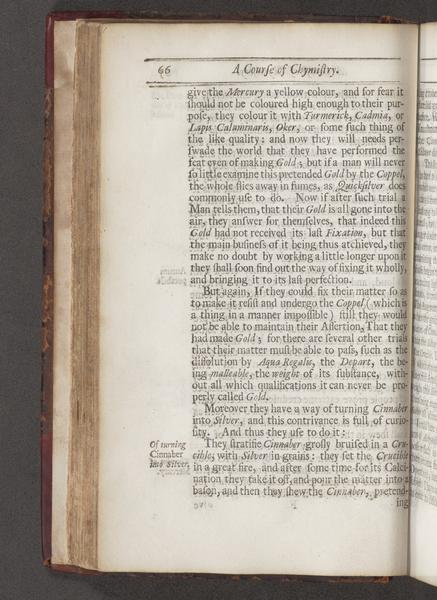 66 A Courſe of Chymiſtry.
give the Mercury a yellow colour, and for fear it
ſhould not be coloured high enough to their pur-
poſe, they colour it with Turmerick, Cadmia, or
Lapis Caluminaris, Oker, or ſome ſuch thing of
the like quality: and now they will needs per-
ſwade the world that they have performed the
feat even of making Gold; but if a man will never
ſo little examine this pretended Gold by the Coppel,
the whole flies away in fumes, as Quickſilver does
commonly uſe to do. Now if after ſuch trial a
Man tells them, that their Gold is all gone into the
air, they anſwer for themſelves, that indeed this
Gold had not received its laſt Fixation, but that
the main buſineſs of it being thus atchieved, they
make no doubt by working a little longer upon it
they ſhall ſoon find out the way of fixing it wholly,
and bringing it to its laſt perfection.
But again, If they could fix their matter ſo as
to make it reſiſt and undergo the Coppel (which is
a thing in a manner impoſſible) ſtill they would
not be able to maintain their Aſſertion, That they
had made Gold; for there are ſeveral other trials
that their matter muſt be able to paſs, ſuch as the
diſſolution by Aqua Regalis, the Depart, the be-
ing malleable, the weight of its ſubſtance, with-
out all which qualifications it can never be pro-
perly called Gold.
Moreover they have a way of turning Cinnaber
into Silver, and this contrivance is full of curio-
ſity. And thus they uſe to do it:
Of turning
Cinnaber
into Silver.
They ſtratifie Cinnaber groſly bruiſed in a Cru-
cible, with Silver in grains: they ſet the Crucible
in a great fire, and after ſome time for its Calci-
nation they take it off, and pour the matter into a
baſon, and then they ſhew the Cinnaber, pretend-
ing